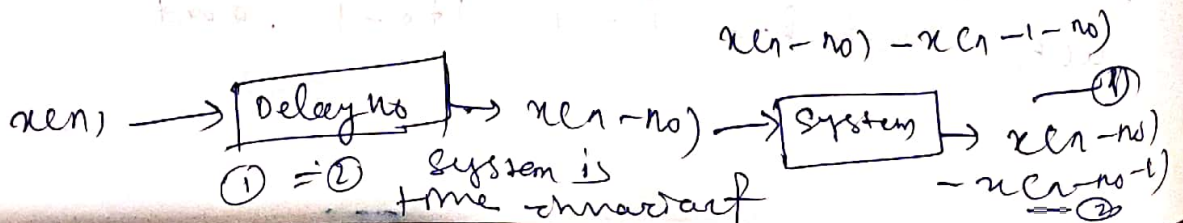 x(n-n0) - x(n-1-n0)
— ①
x(n) → Delay n0 → x(n-n0) → System → x(n-n0)
- x(n-n0-1)
— ②
① = ② System is
time invariant